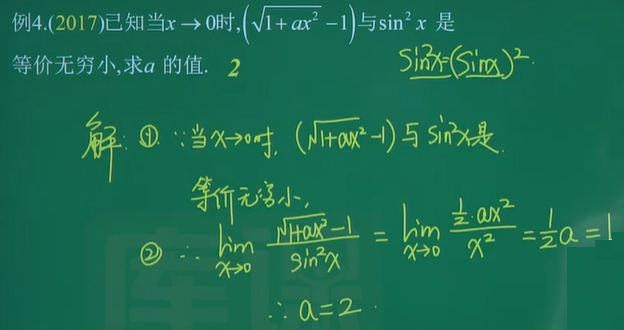 例4.(2017)已知当x→0时,(√(1+ax²) −1)与sin² x 是
等价无穷小,求a 的值. 2
sin²x=(sinx)².
解: ① ∵当x→0时, (√(1+ax²)−1)与sin²x是
等价无穷小,
② ∴ lim x→0 (√(1+ax²)−1)/(sin²x) = lim x→0 (½·ax²)/(x²) = ½a = 1
∴ a=2.